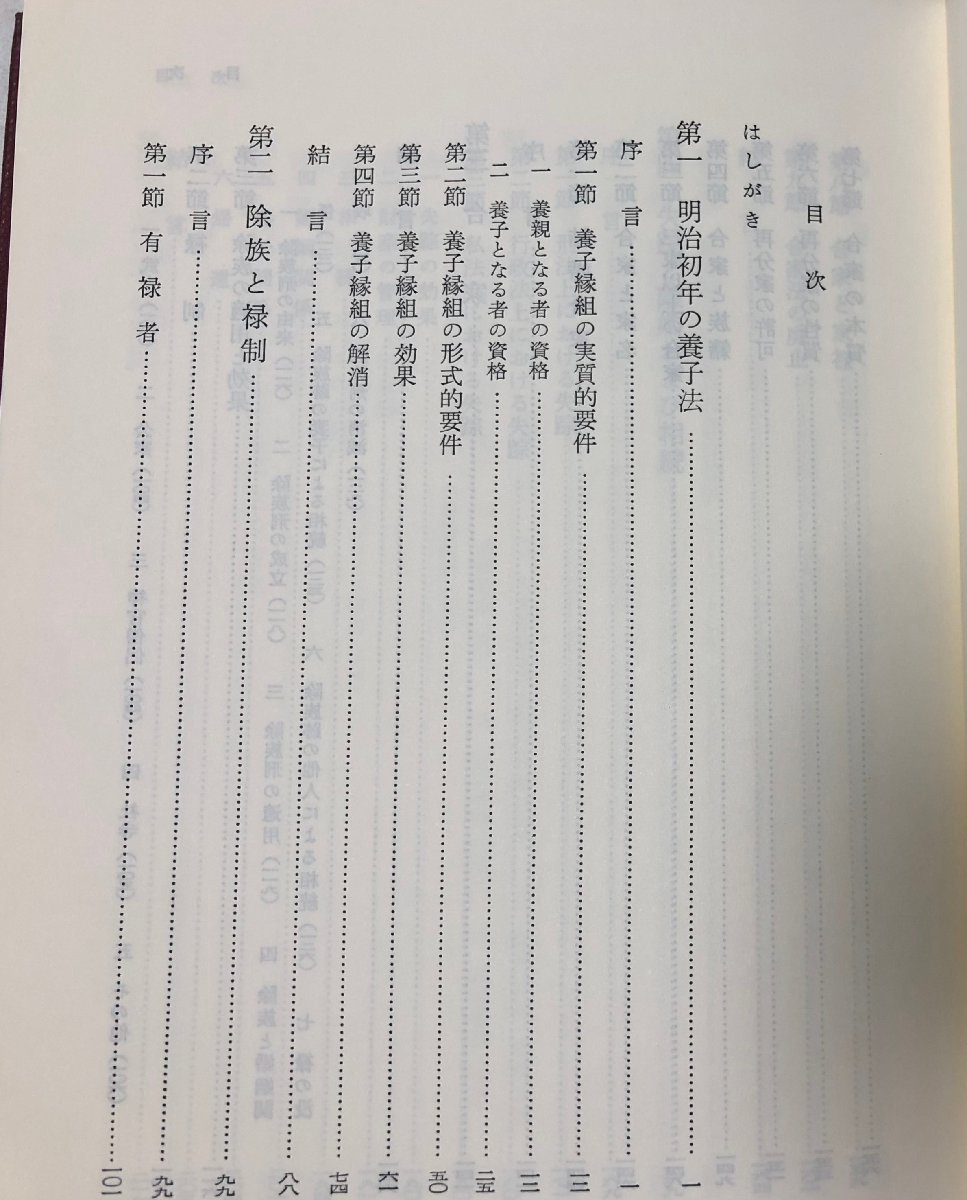 目次
はしがき
第一 明治初年の養子法……一
序言……一
第一節 養子縁組の実質的要件……
一 養親となる者の資格……
二 養子となる者の資格……二五
第二節 養子縁組の形式的要件……五〇
第三節 養子縁組の効果……六一
第四節 養子縁組の解消……七四
結言……八八
第二 除族と禄制……九九
序言……九九
第一節 有禄者……一〇一